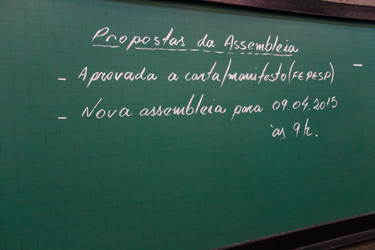 Propostas da Assembleia
- Aprovada a carta/manifesto (FEPESP)
- Nova assembleia para 09.04.2015
às 9h.